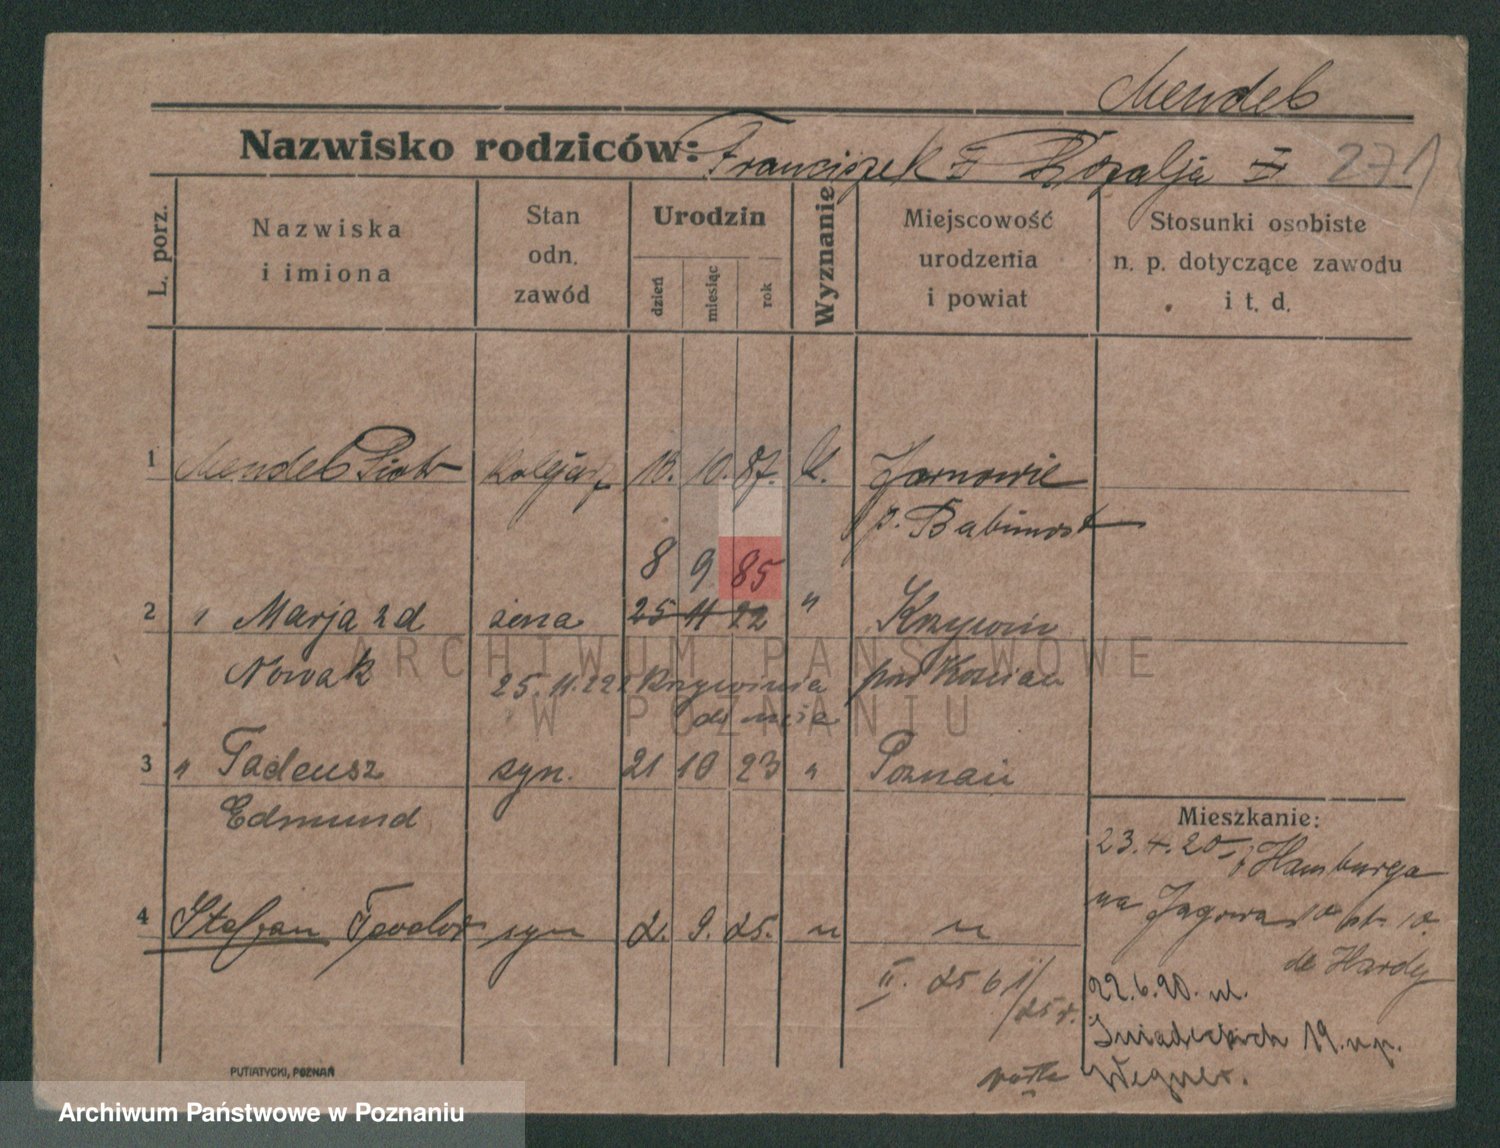 Mendel
Nazwisko rodziców: Franciszek Rozalja 271
L. porz.
Nazwiska
i imiona
Stan
odn.
zawód
Urodzin
dzień
miesiąc
rok
Wyznanie
Miejscowość
urodzenia
i powiat
Stosunki osobiste
n. p. dotyczące zawodu
i t. d.
1 Mendel Piotr 10. 87.
p. Babimost
8 9 85
2 " Marja zd żona 25 11 22 " Krzywin
Nowak 25.11.22 z Krzywinia pow Kościan
do męża
3 " Tadeusz syn. 21 10 23 " Poznań
Edmund
Mieszkanie:
23.4.20 z Hamburga
na Jagowa
4 Stefan Teodor syn 2. 9. 25. " "
de Hardy
II. 25 61/25 r.
22.6.20. ul.
Śniadeckich 19. u p.
Wegner.
PUTIATYCKI, POZNAŃ
ARCHIWUM PAŃSTWOWE
W POZNANIU
Archiwum Państwowe w Poznaniu